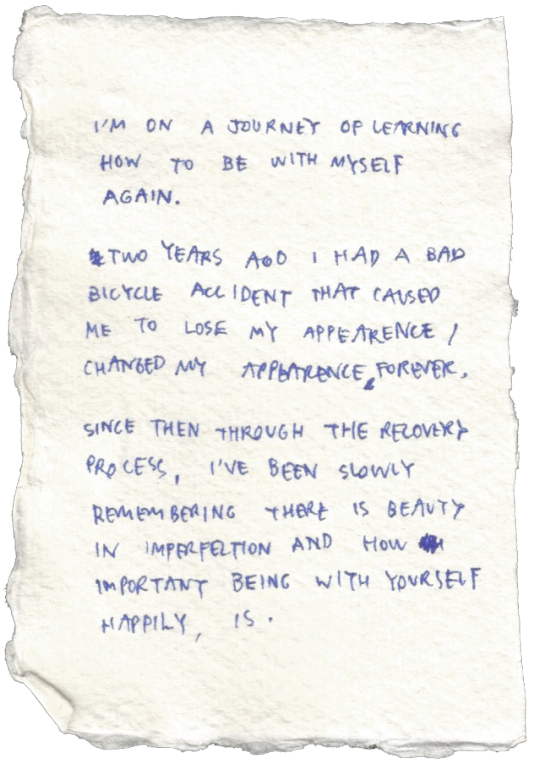 I'M ON A JOURNEY OF LEARNING
HOW TO BE WITH MYSELF
AGAIN.
TWO YEARS AGO I HAD A BAD
BICYCLE ACCIDENT THAT CAUSED
ME TO LOSE MY APPEARENCE /
CHANGED MY APPEARENCE, FOREVER.
SINCE THEN THROUGH THE RECOVERY
PROCESS, I'VE BEEN SLOWLY
REMEMBERING THERE IS BEAUTY
IN IMPERFECTION AND HOW
IMPORTANT BEING WITH YOURSELF
HAPPILY, IS.